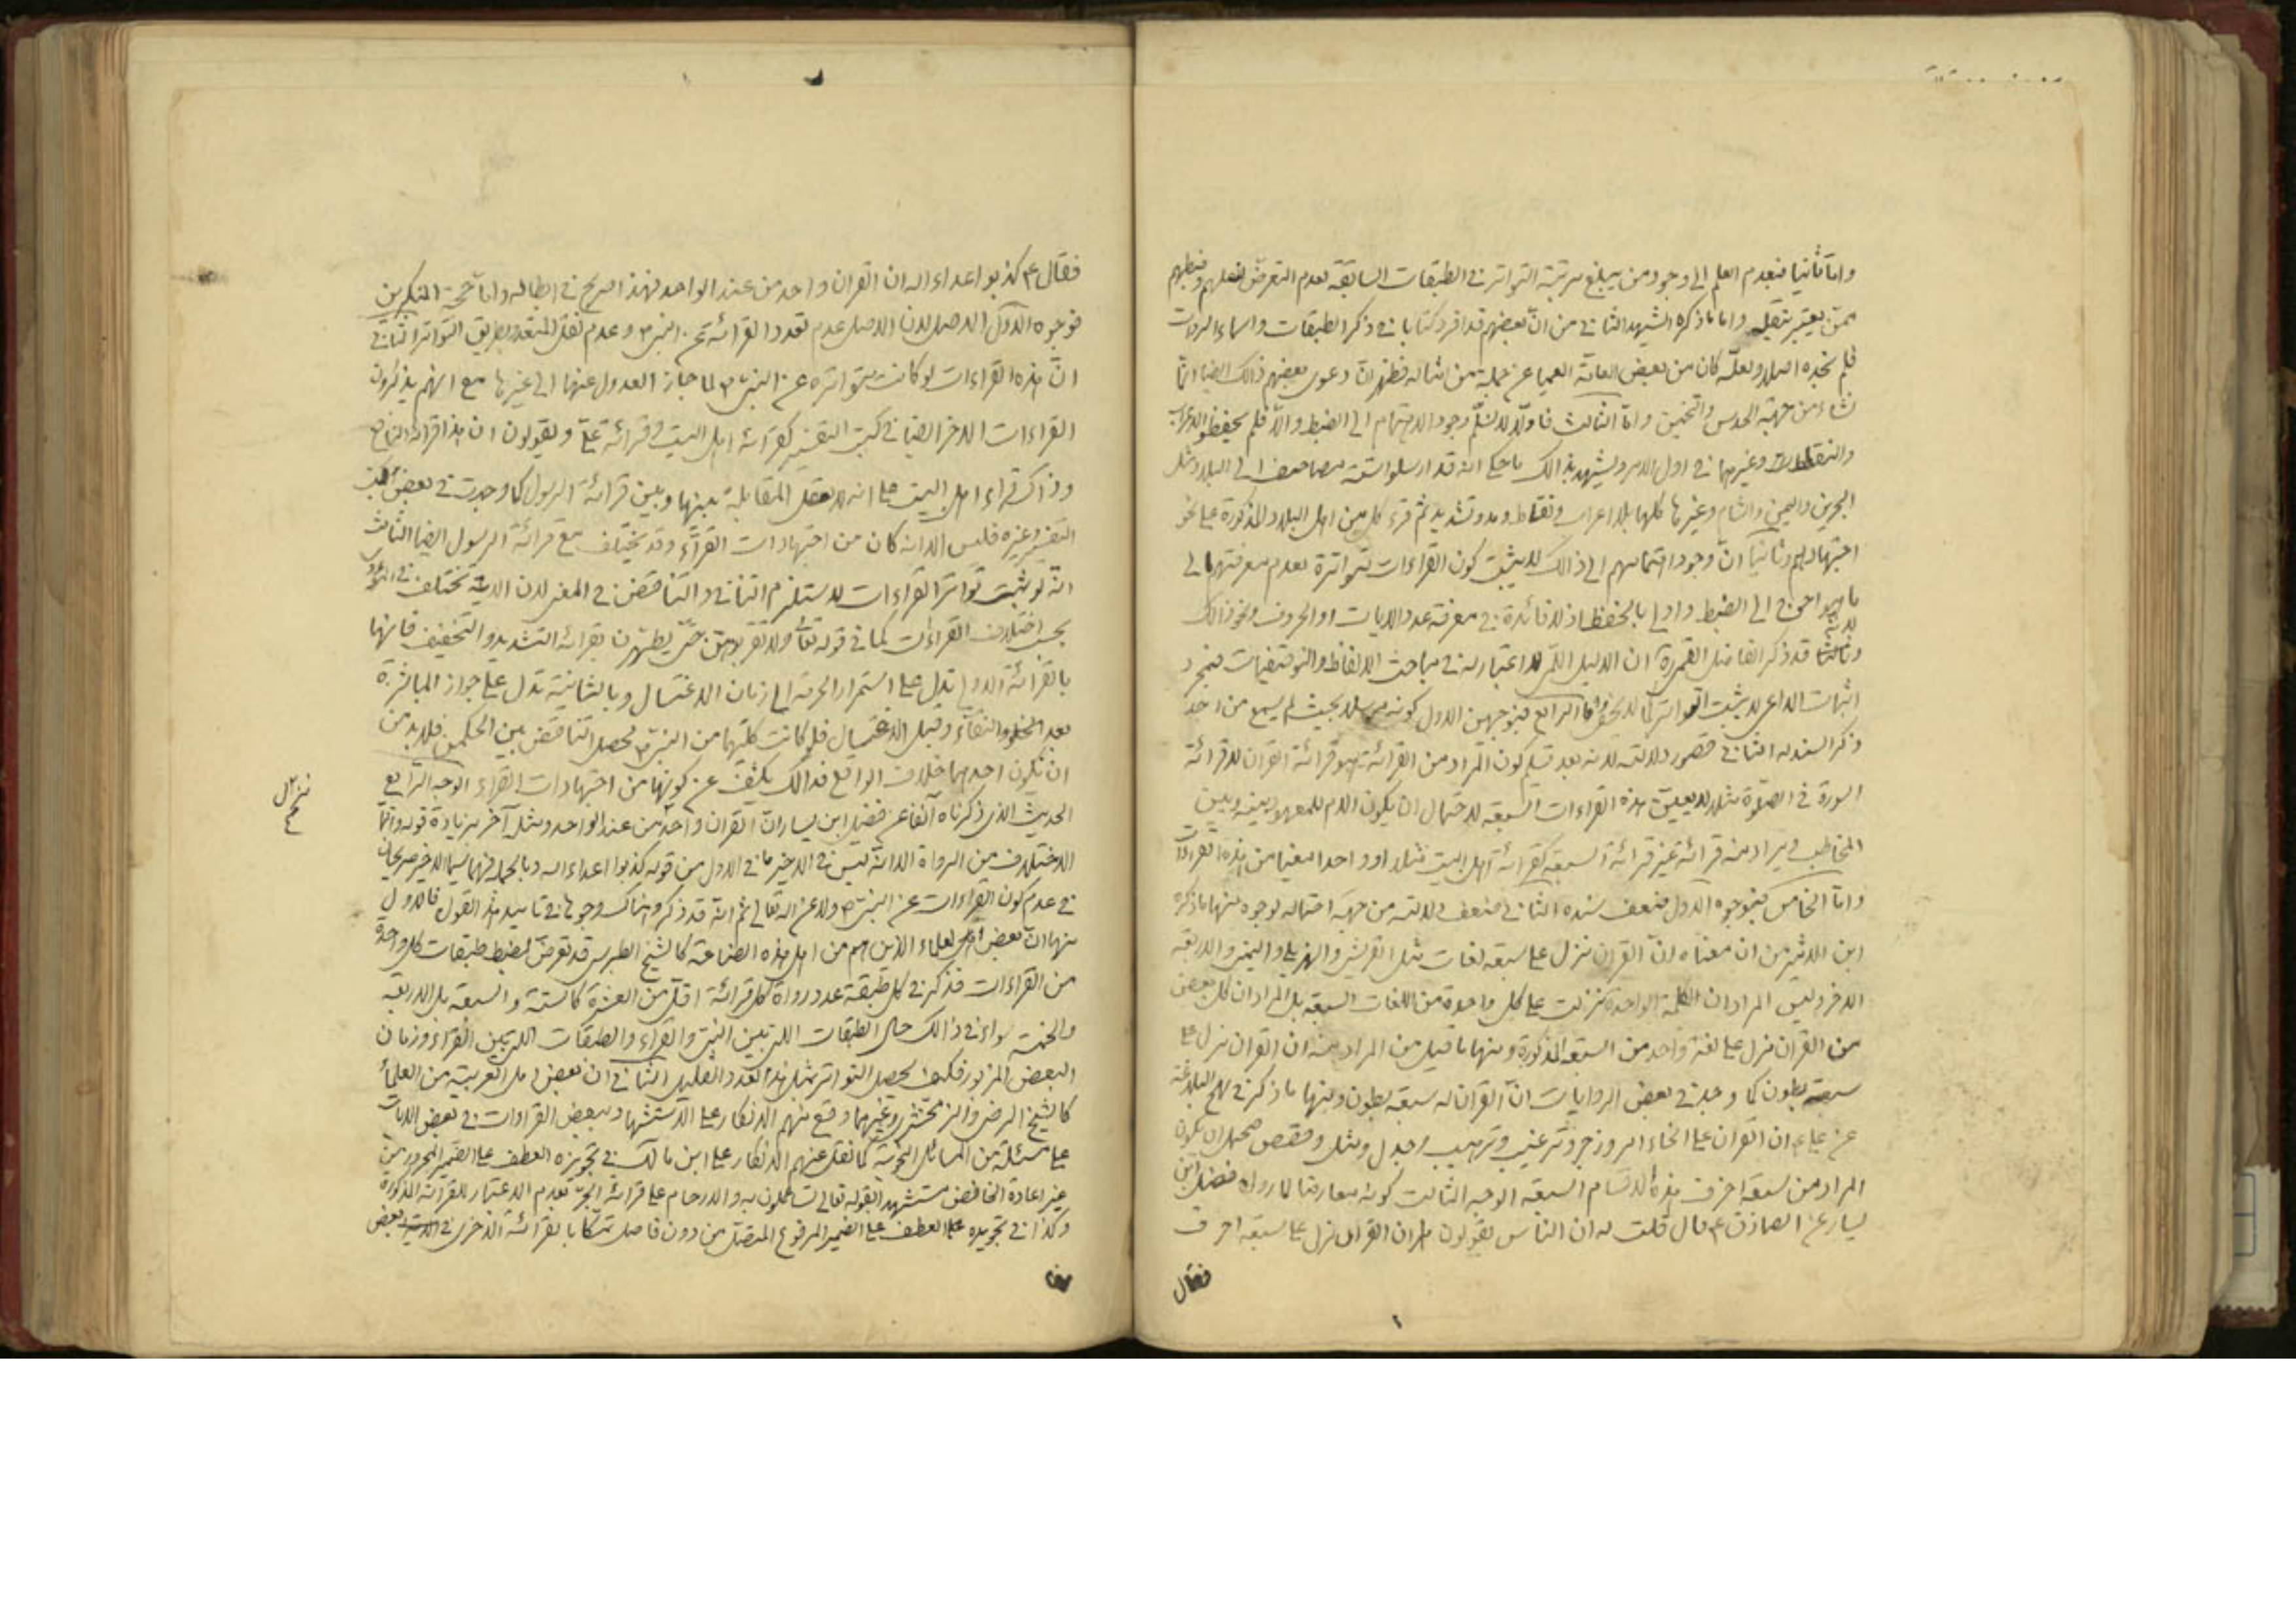 واما ثانيا فبعدم العلم الى وجود من يبلغ مرتبة التواتر في الطبقات السابقة لعدم التعرض لنقلهم وضبطهم
ممن يعتبر بنقله واما ما ذكره الشهيد الثاني من ان بعضهم قد افرد كتابا في ذكر الطبقات واسماء الروات
فلم نجده اصلا ولعله كان من بعض العامة العمياء عن جملة من امثاله فظهر ان دعوى بعضهم ذالك ايضا انما
نشاء من جهة الحدس والتخمين واما الثالث فاولا لا نسلم وجود الاهتمام الى الضبط والا فلم يحفظوا الاعراب
والنقاط وغيرهما في اول الامر ويشهد بذالك ما حكي انه قد ارسلوا ستة مصاحف الى البلاد مثل
البحرين واليمن والشام وغيرها كلها بلا اعراب ونقاط ومد وتشديد ثم قرء كل من اهل البلاد المذكورة على نحو
اجتهادهم وثانيا ان وجود اهتمامهم الى ذالك لا يثبت كون القراءات متواترة لعدم معرفتهم الى
ما هو احوج الى الضبط واولى بالحفظ اذ لا فائدة في معرفة عدد الايات او الحروف ونحو ذالك
وثالثا قد ذكر الفاضل القمي ان الدليل اللمي لا اعتبار له في مباحث الالفاظ والتوقيفيات فبمجرد
اثبات الداعي لا يثبت التواتر كما لا يخفى واما الرابع فبوجهين الاول كونه مرسلا بحيث لم يسمع من احد
ذكر السند له الثاني قصور دلالته لانه بعد تسليم كون المراد من القرائة هو قرائة القران لا قرائة
السورة في الصلوة مثلا لا يعين هذه القراءات السبعة لاحتمال ان يكون اللام للمعهود بينه وبين
المخاطب ويراد منه قرائة غير قرائة السبعة كقرائة اهل البيت مثلا او واحدا معينا من هذه القراءات
واما الخامس فبوجوه الاول ضعف سنده الثاني ضعف دلالته من جهة احتماله لوجوه منها ما ذكره
ابن الاثير من ان معناه ان القران نزل على سبعة لغات مثل القريش والهذيل واليمن والاربعة
الاخر وليس المراد ان الكلمة الواحدة نزلت على كل واحدة من اللغات السبعة بل المراد ان كل بعض
من القران نزل على لغة واحد من السبعة المذكورة ومنها ما قيل من المراد منه ان القران نزل على
سبعة بطون كما وجد في بعض الروايات ان القران له سبعة بطون ومنها ما ذكر في نهج البلاغة
عن علي ع ان القران على انحاء امر وزجر وترغيب وترهيب وجدل ومثل وقصص فيحتمل ان يكون
المراد من سبعة احرف هذه الاقسام السبعة الوجه الثالث كونه معارضا لما رواه فضيل ابن
يسار عن الصادق ع قال قلت له ان الناس يقولون ان القران نزل على سبعة احرف
فقال
فقال ع كذبوا اعداء الله ان القران واحد من عند الواحد فهذا صريح في ابطاله واما حجة المنكرين
فوجوه الاول الاصل لان الاصل عدم تعدد القرائة عن النبي ص وعدم نقل المتعدد بطريق التواتر الثاني
ان هذه القراءات لو كانت متواترة عن النبي ص لما جاز العدول عنها الى غيرها مع انهم يذكرون
القراءات الاخر ايضا في كتب التفسير كقرائة اهل البيت وقرائة علي ويقولون ان هذا قراءة النافع
وذاك قراءة اهل البيت على انه لا يعقل المقابلة بينها وبين قرائة الرسول كما وجدت في بعض كتب
التفسير وغيره فليس الا انه كان من اجتهادات القراء وقد يختلف مع قرائة الرسول ايضا الثالث
انه لو ثبت تواتر القراءات لاستلزم التنافي والتناقض في المعنى لان الاية تختلف في
بحسب اختلاف القراءات كما في قوله تعالى ولا تقربوهن حتى يطهرن بقرائة التشديد والتخفيف فانها
بالقرائة الاولى تدل على استمرار الحرمة الى زمان الاغتسال وبالثانية تدل على جواز المباشرة
بعد والنقاء وقبل الاغتسال فلو كانت كلتهما من النبي ص لحصل التناقض بين الحكمين فلا بد من
ان يكون احدهما خلاف الواقع فذالك يكشف عن كونها من اجتهادات القراء الوجه الرابع
الحديث الذي ذكرناه آنفا عن فضيل ابن يسار ان القران واحد من عند الواحد ومثله آخر بزيادة قوله وانما
الاختلاف من الرواة الا انه ليس في الاخير ما في الاول من قوله كذبوا اعداء الله وبالجملة فهما سيما الاخير صريحان
في عدم كون القراءات عن النبي ص ولا عن الله تعالى ثم انه قد ذكروا هناك وجوها في تاييد هذا القول فالاول
منها ان بعض العلماء الذين هم من اهل هذه الصناعة كالشيخ الطبرسي قد تعرض لضبط طبقات كل واحدة
من القراءات فذكر في كل طبقة عدد رواة كل قرائة اقل من العشرة كالستة والسبعة بل الاربعة
والخمسة سواء في ذالك حال الطبقات اللتي بين النبي والقراء والطبقات اللتي بين القراء وزمان
البعض المزبور فكيف يحصل التواتر بمثل هذا العدد القليل الثاني ان بعض اهل العربية من العلماء
كالشيخ الرضي والزمخشري وغيرهما وقع منهم الانكار على الاستشهاد ببعض القراءات في بعض الايات
على مسئلة من المسائل النحوية كما نقل عنهم الانكار على ابن مالك في تجويزه العطف على الضمير المجرور من
غير اعادة الخافض مستشهدا بقوله تعالى تسائلون به والارحام على قرائة الجر بعدم الاعتبار للقرائة المذكورة
وكذا في تجويزه العطف على الضمير المرفوع المتصل من دون فاصل تمسكا بالقرائة الاخرى في بعض